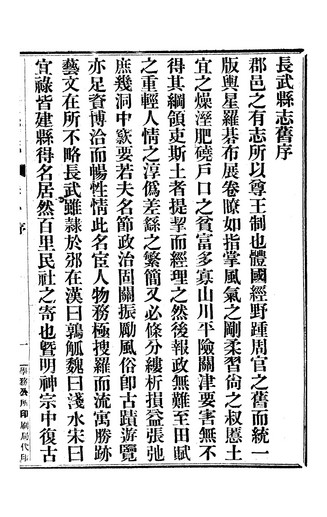 長武縣志舊序
郡邑之有志所以尊王制也體國經野踵周官之舊而統一
版輿星羅碁布展卷瞭如指掌風氣之剛柔習尙之叔慝土
宜之燥溼肥磽戶口之貧富多寡山川平險關津要害無不
得其綱領吏斯土者提挈而經理之然後報政無難至田賦
之重輕人情之淳僞差繇之繁簡又必條分縷析損益張弛
庶幾洞中窾要若夫名節政治固關振勵風俗卽古蹟遊覽
亦足資博洽而暢性情此名宦人物務極搜羅而流寓勝跡
藝文在所不略長武雖隸於邠在漢曰鶉觚魏曰淺水宋曰
宜祿皆建縣得名居然百里民社之寄也曁明神宗中復古
序
一
學務公所印刷局代印